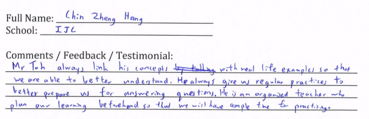 Full Name: Chin Zheng Hang
School: IJC
Comments / Feedback / Testimonial:
Mr Toh always link his concepts with real life examples so that
we are able to better understand. He always give us regular practices to
better prepare us for answering questions. He is an organised teacher who
plan our learning beforehand so that we will have ample time for practising.